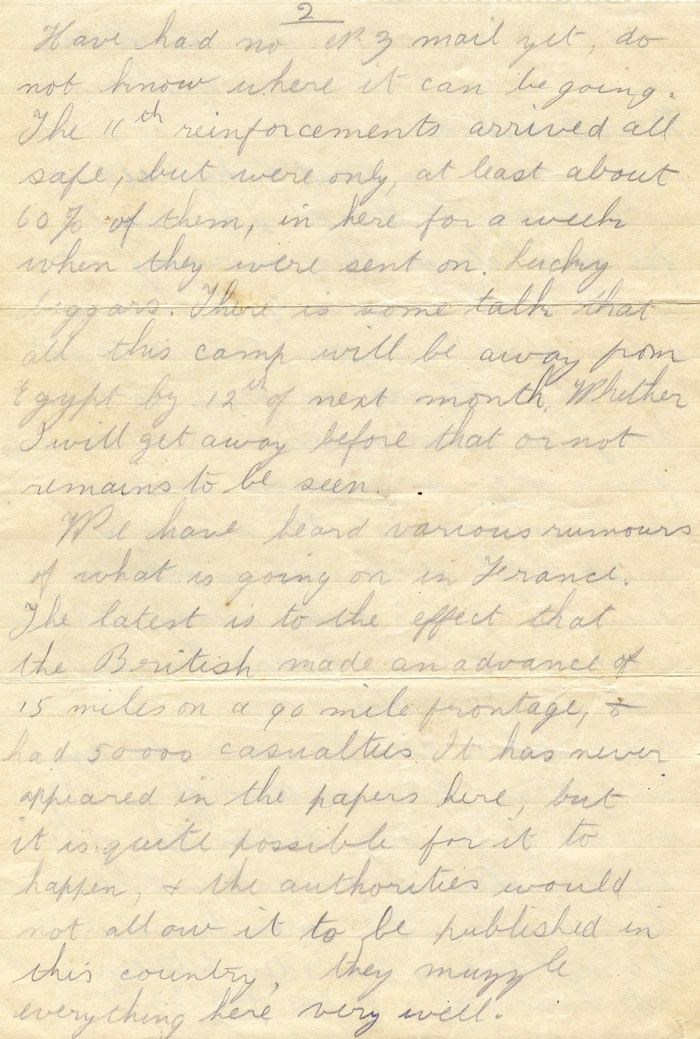 2
Have had no N.Z mail yet, do
not know where it can be going.
The 11th reinforcements arrived all
safe, but were only, at least about
60% of them, in here for a week
when they were sent on. Lucky
beggars. There is some talk that
all this camp will be away from
Egypt by 12th of next month. Whether
I will get away before that or not
remains to be seen.
We have heard various rumours
of what is going on in France.
The latest is to the effect that
the British made an advance of
15 miles on a 90 mile frontage, &
had 50000 casualties. It has never
appeared in the papers here, but
it is quite possible for it to
happen, & the authorities would
not allow it to be published in
this country, they muzzle
everything here very well.